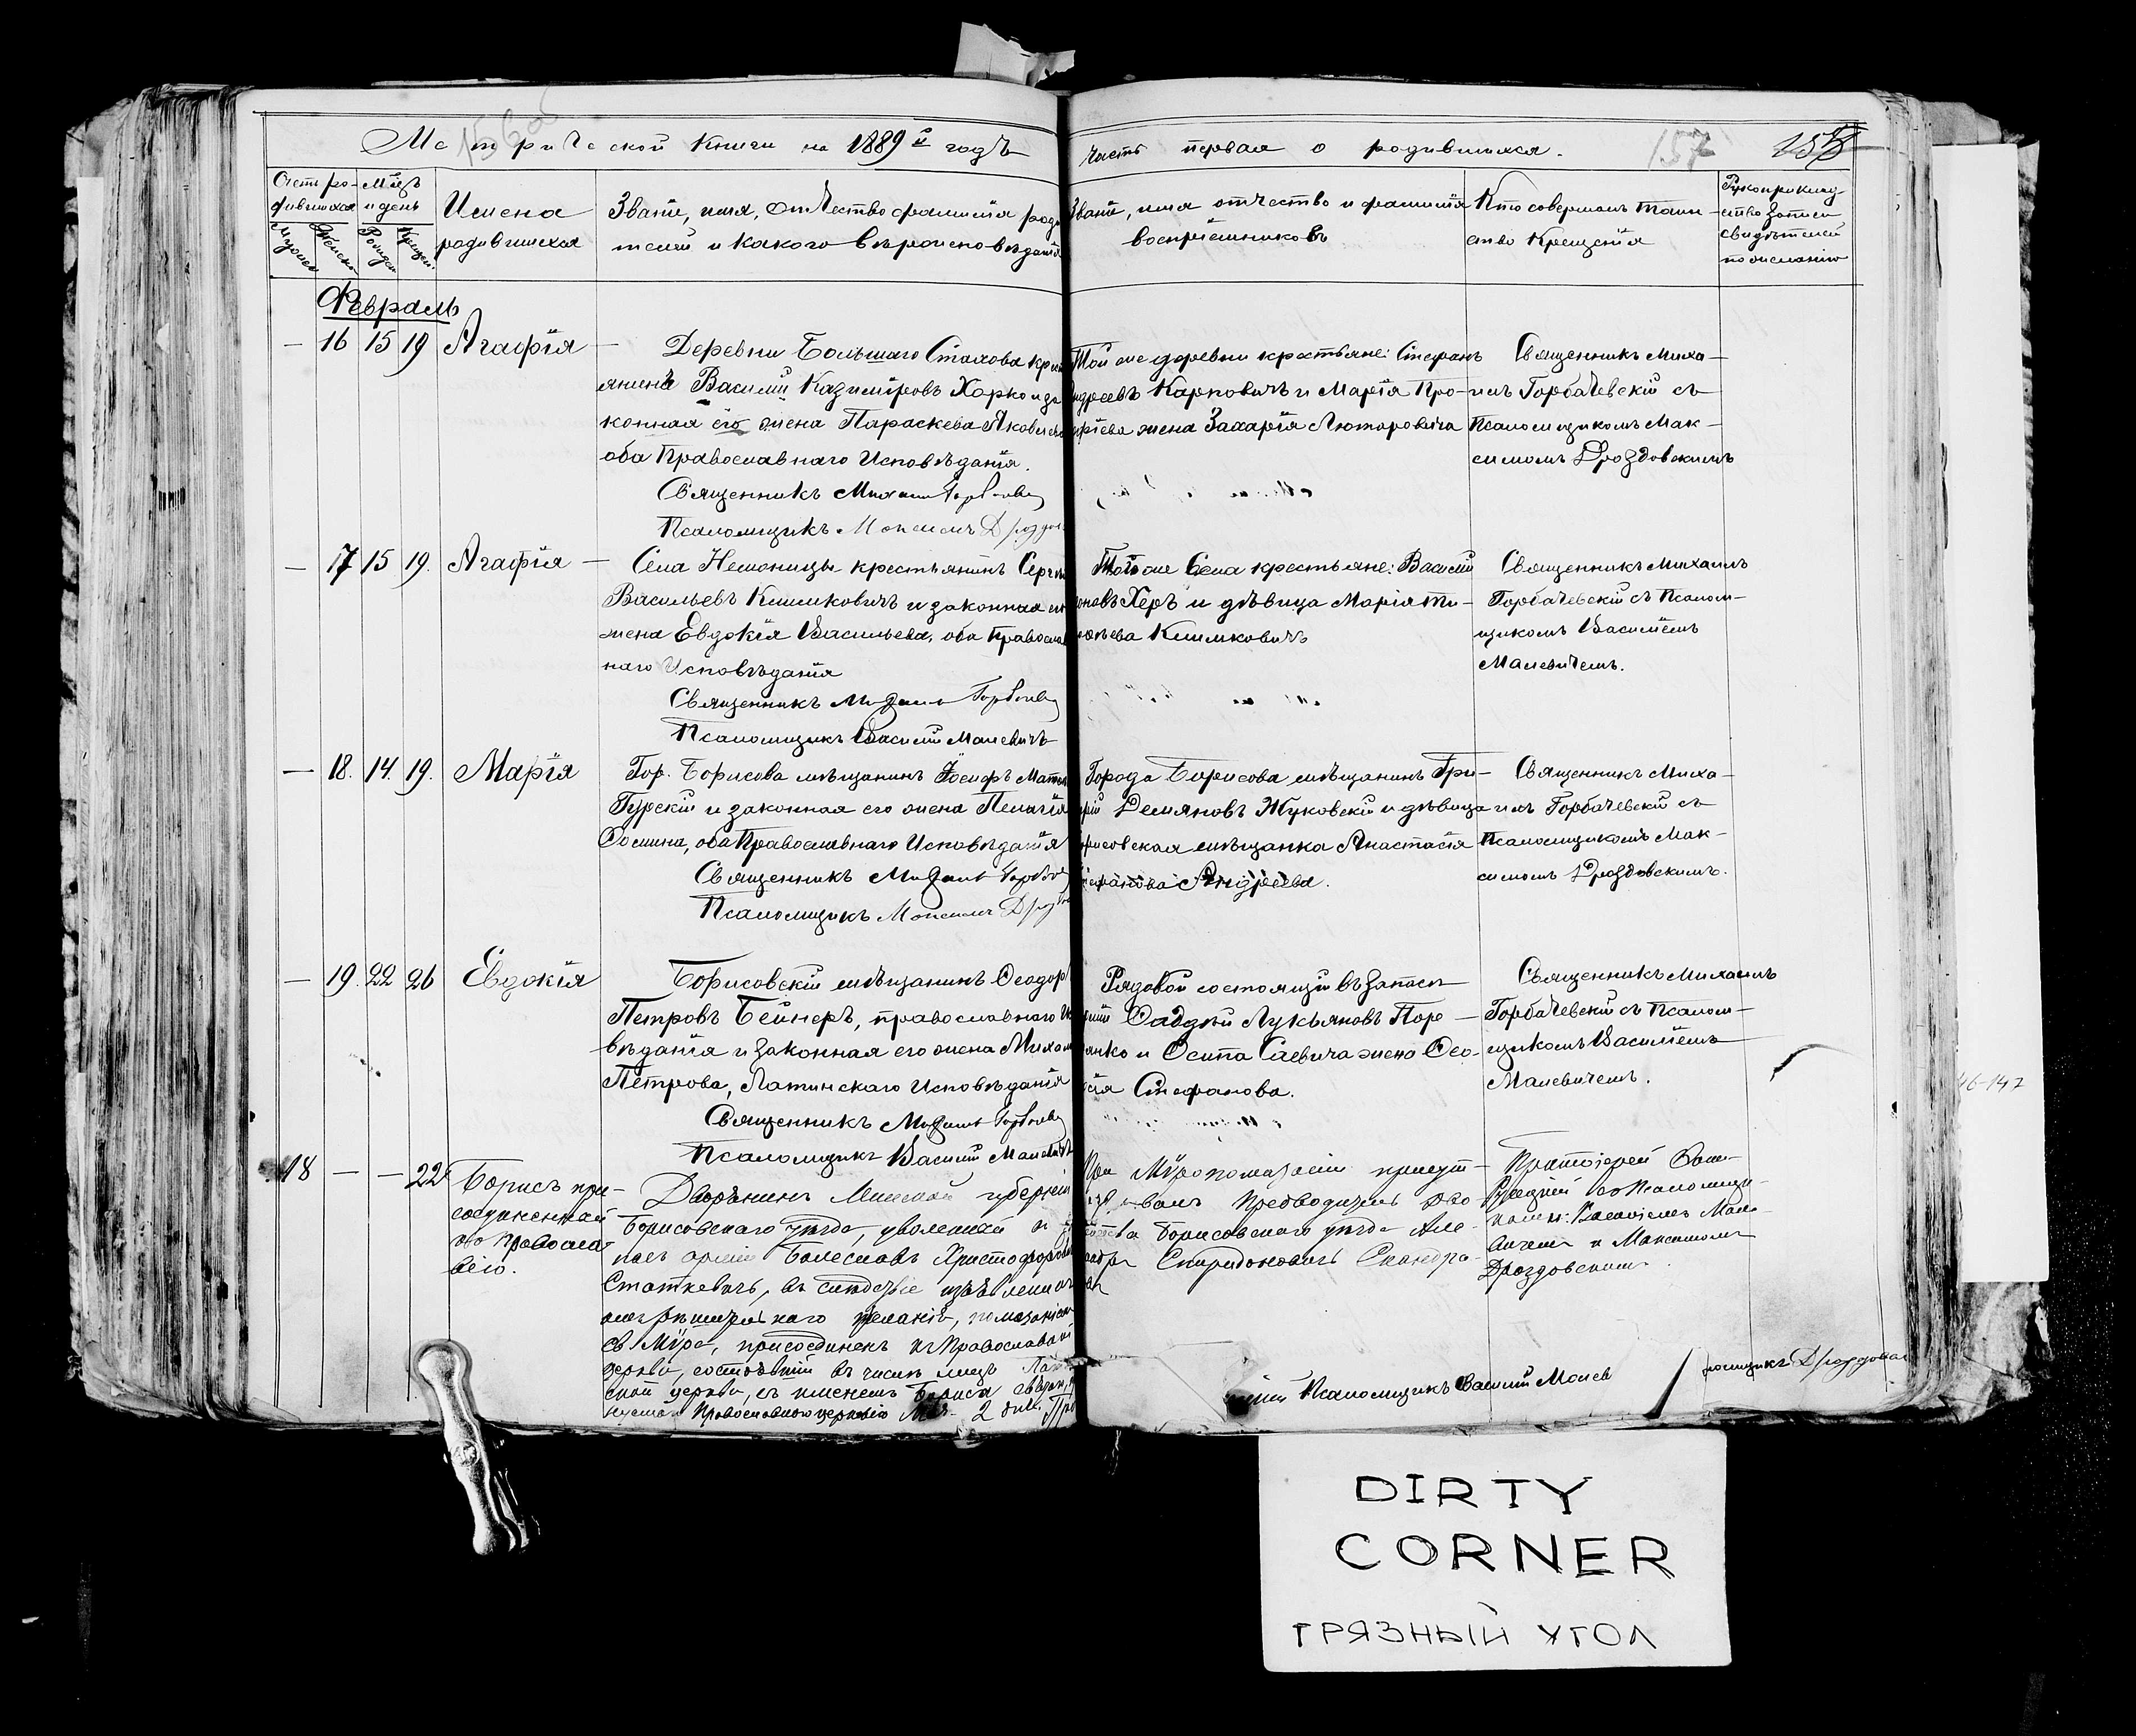 Метрической книги на 1889й годъ
часть первая о родившихся.
157
Счетъ ро-
дившихся
Мѣцъ
и день
Имена
родившихся
Званіе, имя, отчество фамилія роди
телей и какого вѣроисповѣданія
Званіе, имя отчество и фамилія
воспріемниковъ
Кто совершалъ таин-
ство Крещенія
Рукоприклад
ство записи
свидѣтелей
по желанію
Мужеск
Женск
Рожден
Крещен
Февраль
— 16 15 19 Агафія —
Деревни Большаго Стахова крест
янинъ Василій Казиміровъ Харко и за
конная его жена Параскева Яковлева
оба Православнаго Исповѣданія.
Священникъ Михаилъ Горбачев
Псаломщикъ Максимъ Дроздов
Той же деревни крестьяне: Стефанъ
ндреевъ Карповичъ и Марія Про-
офіева жена Захарія Лютаровича
Священникъ Миха-
илъ Горбачевскій съ
Псаломщикомъ Мак-
симомъ Дроздовскимъ
— 17 15 19. Агафія —
Села Неманицы крестьянинъ Сергѣй
Васильевъ Климковичъ и законная его
жена Евдокія Васильева, оба Православ
наго Исповѣданія
Священникъ Михаилъ Горбачев
Псаломщикъ Василій Малевичъ
Того же Села крестьяне: Василій
оновъ Херъ и дѣвица Марія Ти-
оѳѣева Климковичъ
Священникъ Михаилъ
Горбачевскій съ Псалом-
щикомъ Василіемъ
Малевичемъ.
— 18. 14. 19. Марія
Гор. Борисова мѣщанинъ Іосифъ Матв
Гурскій и законная его жена Пелагія
Ѳомина, оба Православнаго Исповѣданія
Священникъ Михаилъ Горбачев
Псаломщикъ Максимъ Дроздов
Города Борисова мѣщанинъ Гри-
рій Демяновъ Жуковскій и дѣвица
рисовская мѣщанка Анастасія
тефанова Андреева.
Священникъ Миха-
илъ Горбачевскій съ
Псаломщикомъ Мак-
симомъ Дроздовскимъ.
— 19. 22 26 Евдокія
Борисовскій мѣщанинъ Ѳеодоръ
Петровъ Бейнеръ, православнаго Ис
вѣданія и законная его жена Михал
Петрова, Латинскаго Исповѣданія
Священникъ Михаилъ Горбачев
Псаломщикъ Василій Малевичъ
Рядовой состоящій въ запасѣ
Ѳаддѣй Лукьяновъ Поре-
янко и Осипа Саевича жена Ѳео-
сія Стефанова.
Священникъ Михаилъ
Горбачевскій съ Псалом-
щикомъ Василіемъ
Малевичемъ.
46-147
18 — — 22
Борисъ при-
соединенный
ко Правосла-
вію.
Дворянинъ Минской губерніи
Борисовскаго уѣзда, уволенный въ
пасъ арміи Болеславъ Христофоровъ
Статкевичъ, въ слѣдствіе изъявленнаго
имъ рѣшительнаго желанія, помазаніемъ
Св Мѵра, присоединенъ къ Православной
церкви, состоявшій въ числѣ лицъ Латин
ской церкви, съ именемъ Бориса
Православною церковію Мая 2 дня.
При Мѵропомазаніи присут-
валъ Предводитель дво
ства Борисовскаго уѣзда Але-
андръ Спиридоновичъ
Протоіерей
съ Псаломщи-
ками: Василіемъ Мале-
вичемъ и Максимомъ
Дроздовскимъ.
Псаломщикъ Василій Малев
ломщикъ Дроздовск
DIRTY
CORNER
ГРЯЗНЫЙ УГОЛ